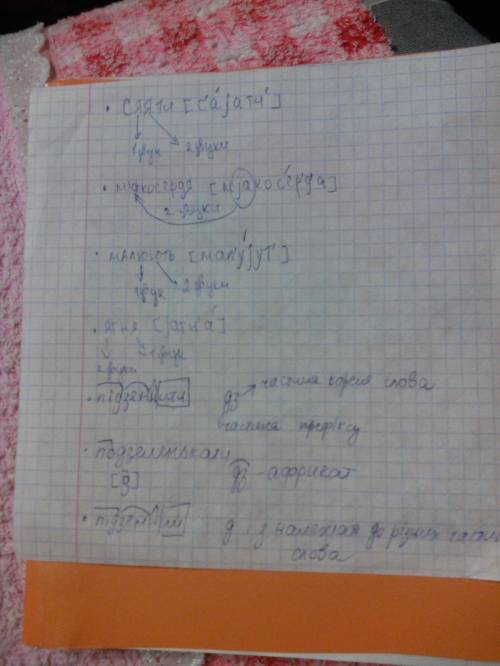 • сяяти [с'áјати]
1 звук 2 звуки
• мякосердя [мјакосéрд'а]
2 звуки
• малюють [мал'ýјут']
1 звук 2 звуки
• ягня [јагн'á]
2 звуки 1 звук
• підземний дз частина кореня слова
частина префіксу
• подзеленькали дз - африкат
[д͡з]
• підзем д і з належать до різних частин
слова